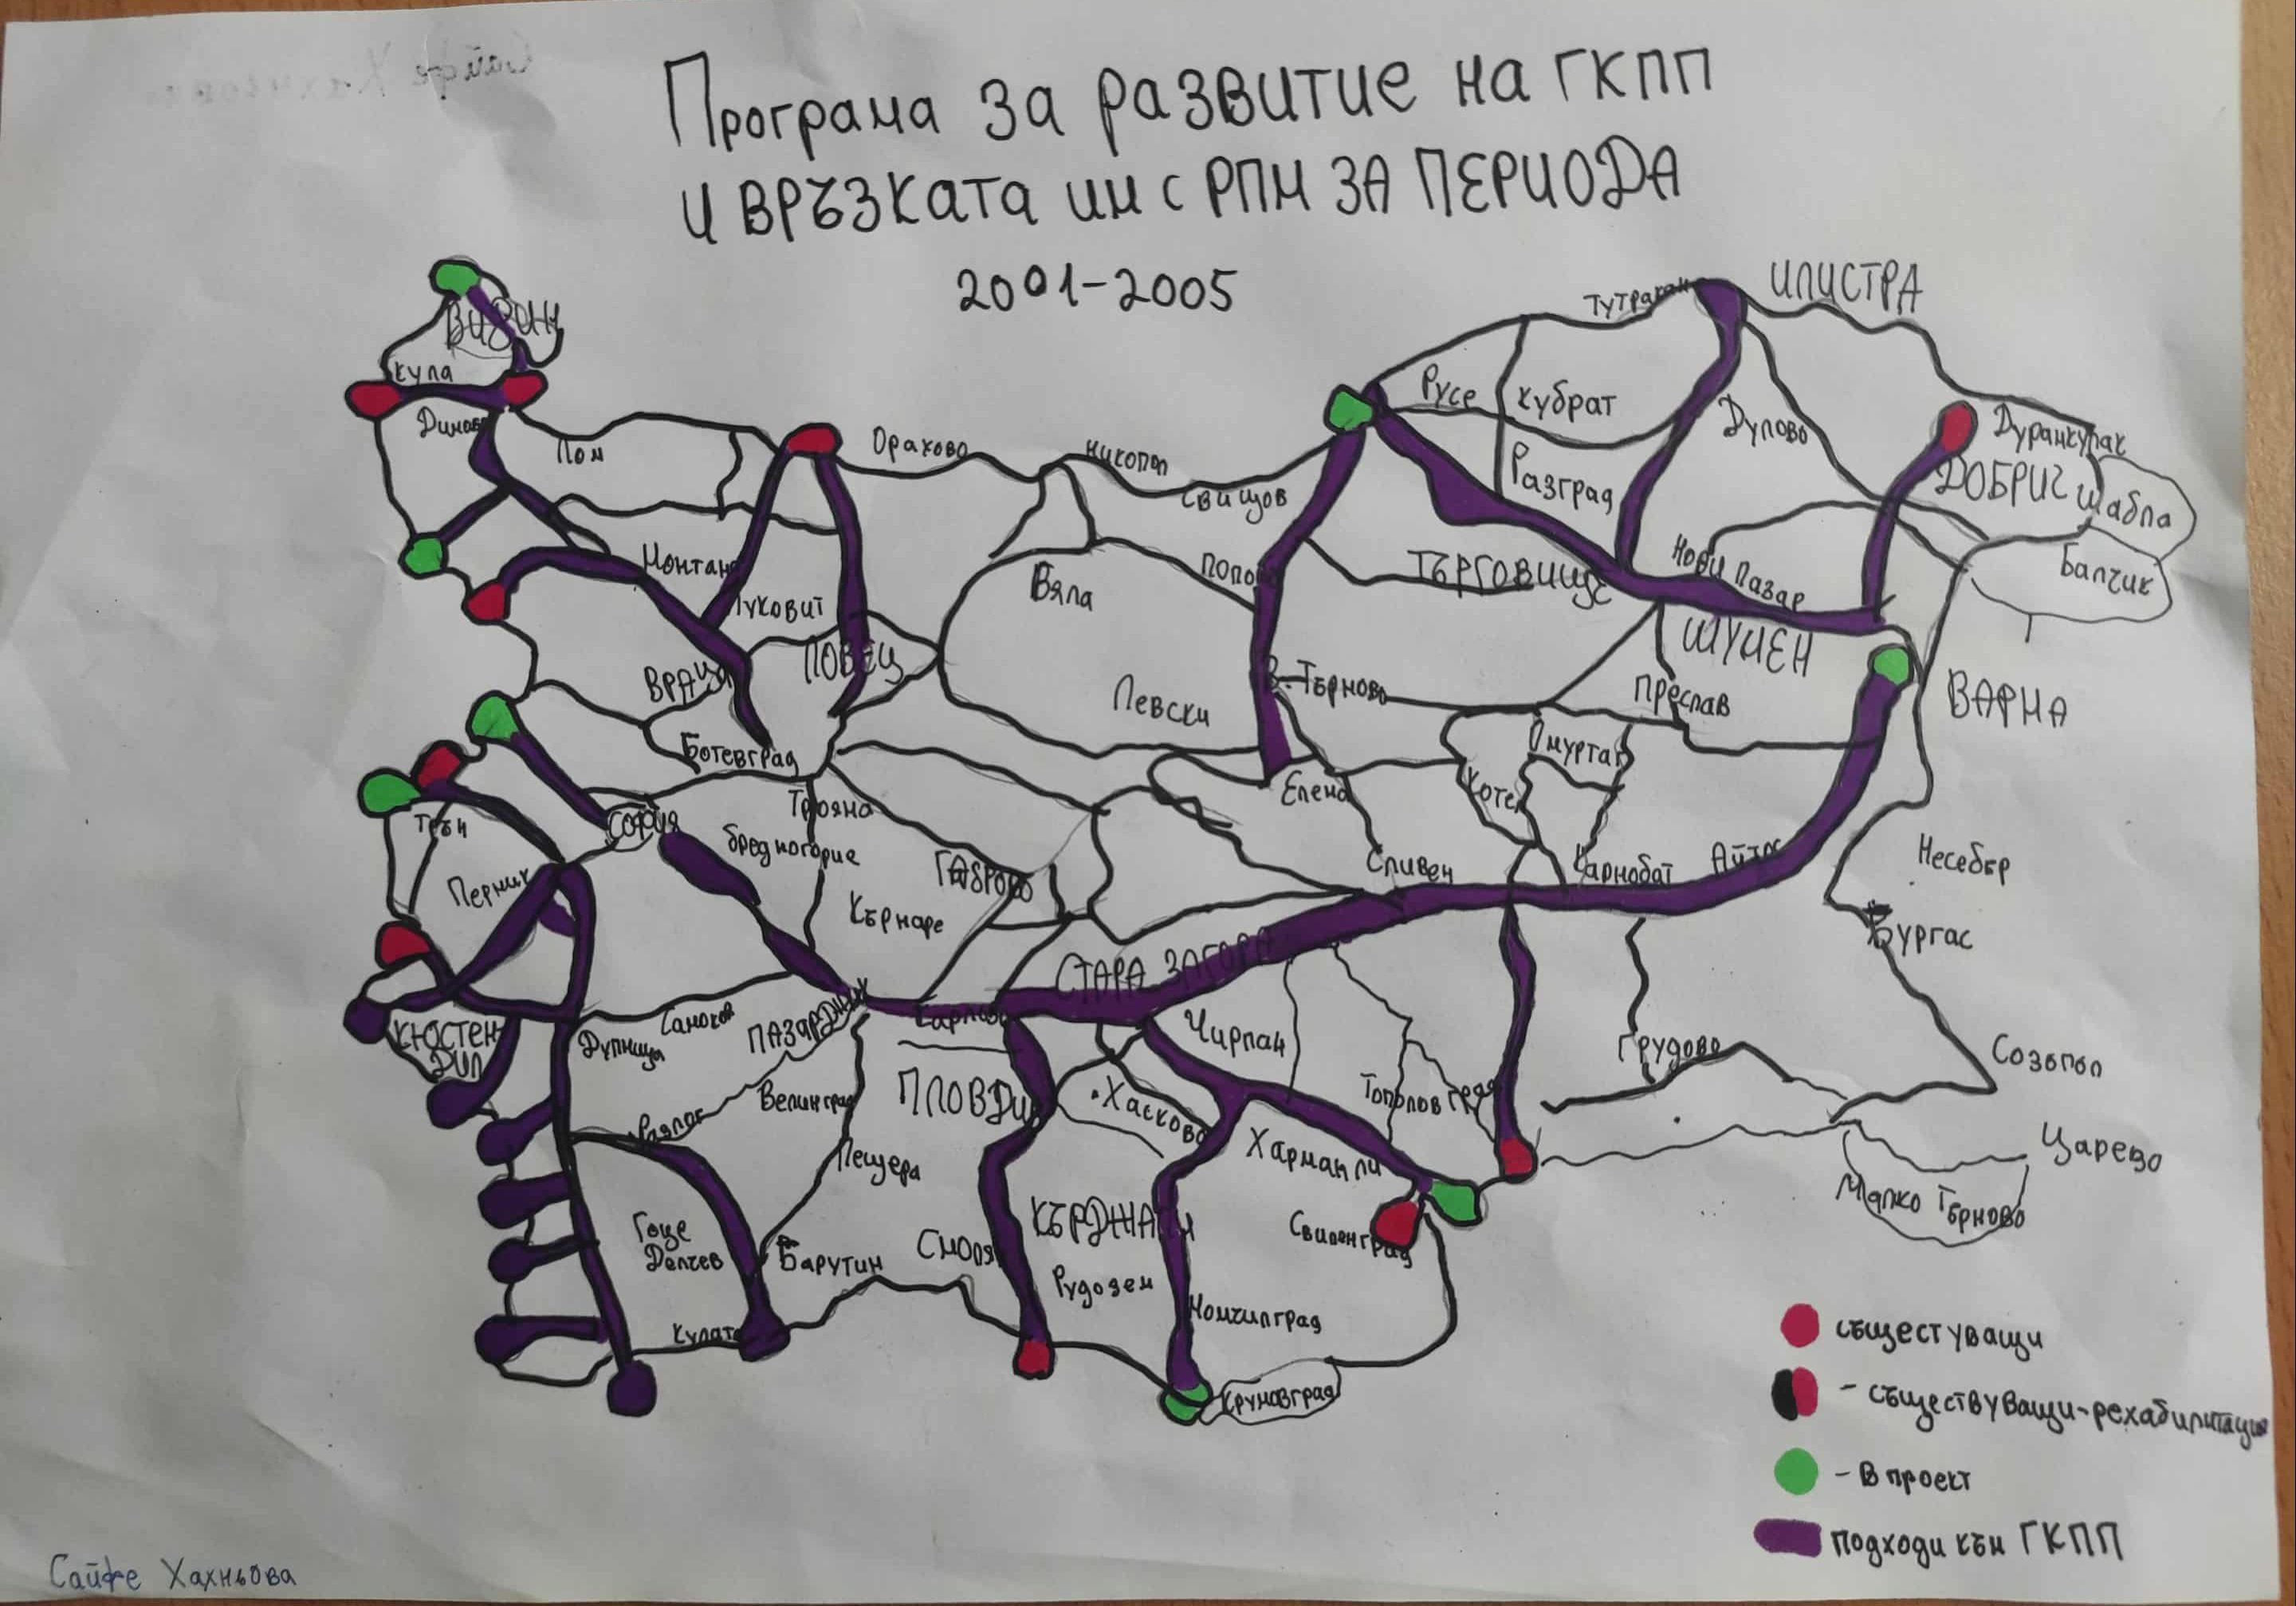 Програма за развитие на ГКПП
и ВРЪЗКАТА им с РПМ ЗА ПЕРИОДА
2001-2005
ИЛИСТРА
Тутракан
ВИДИН
Кула
Русе
Кубрат
Дуранкулак
Димово
Лом
Орахово
Никопол
Свищов
Разград
Дулово
ДОБРИЧ
Шабла
Монтана
Луковит
Бяла
Попово
ТЪРГОВИЩЕ
Нови Пазар
Балчик
ВРАЦА
ЛОВЕЧ
Левски
В. Търново
Преслав
ШУМЕН
ВАРНА
Ботевград
Омуртаг
Котел
Елена
Трояна
София
Средногорие
ГАБРОВО
Сливен
Карнобат
Айтос
Несебър
Трън
Перник
Кърнаре
Бургас
СТАРА ЗАГОРА
КЮСТЕН
ДИЛ
Дупница
Самоков
ПАЗАРДЖИК
Карлово
Чирпан
Грудово
Созопол
ПЛОВДИ
Хасково
Тополовград
Велинград
Разлог
Пещера
Харманли
Царево
Малко Търново
Гоце
Делчев
Барутин
Смолян
КЪРДЖАЛИ
Рудозем
Свиленград
Момчилград
Кулата
Крумовград
същестуващи
- съществуващи-рехабилитация
- В проект
подходи към ГКПП
Сайфе Хахньова